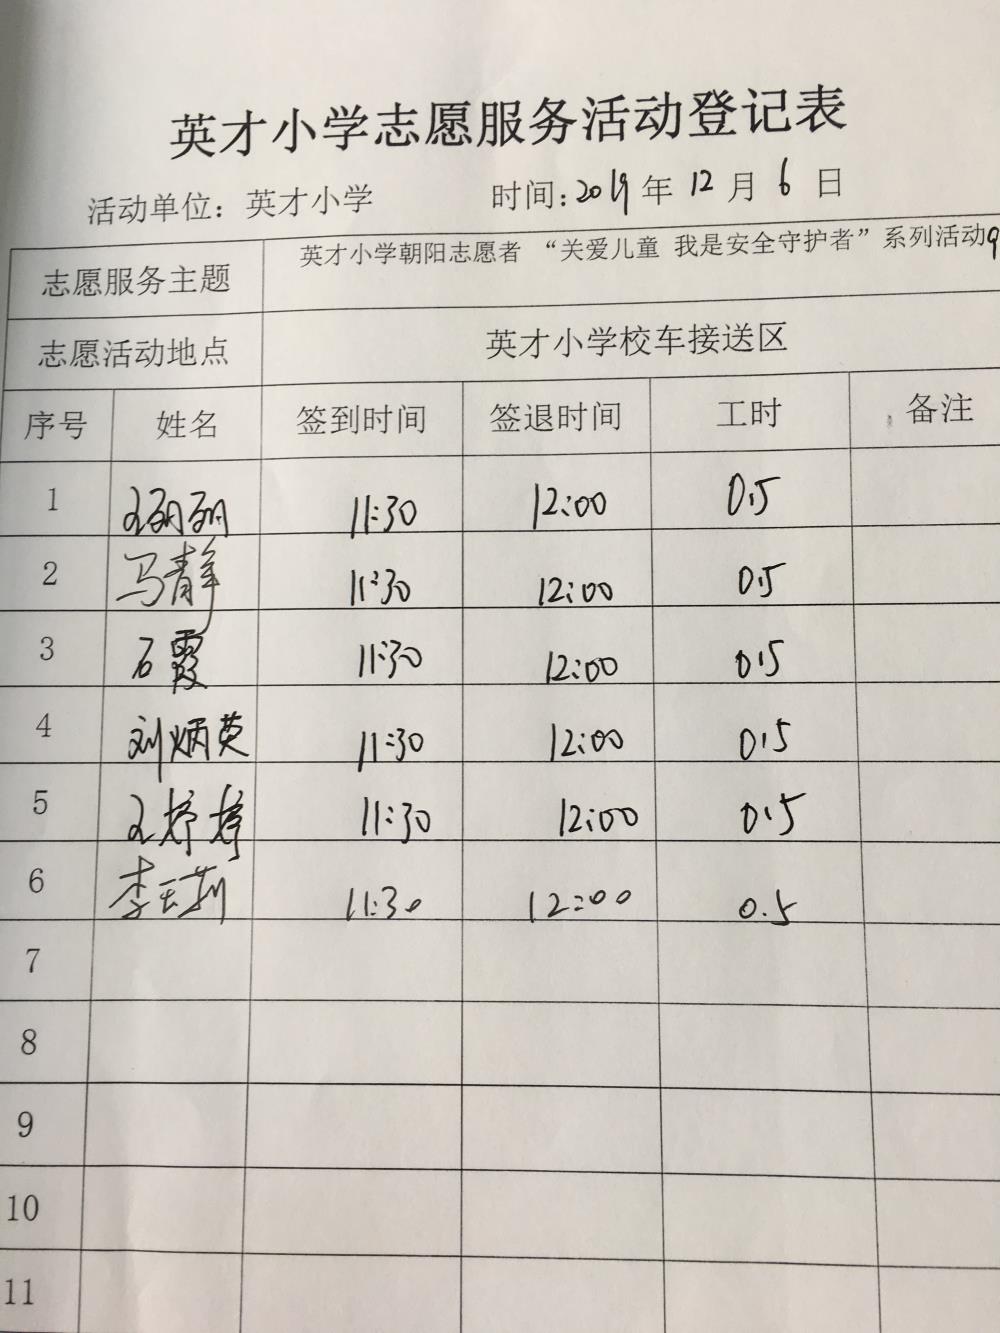 英才小学志愿服务活动登记表
活动单位：英才小学 时间:2019年12月6日
志愿服务主题 英才小学朝阳志愿者 “关爱儿童 我是安全守护者”系列活动9
志愿活动地点 英才小学校车接送区
序号 姓名 签到时间 签退时间 工时 备注
1 王丽丽 11:30 12:00 0.5
2 马静 11:30 12:00 0.5
3 石霞 11:30 12:00 0.5
4 刘炳英 11:30 12:00 0.5
5 王婷婷 11:30 12:00 0.5
6 李玉莉 11:30 12:00 0.5
7
8
9
10
11